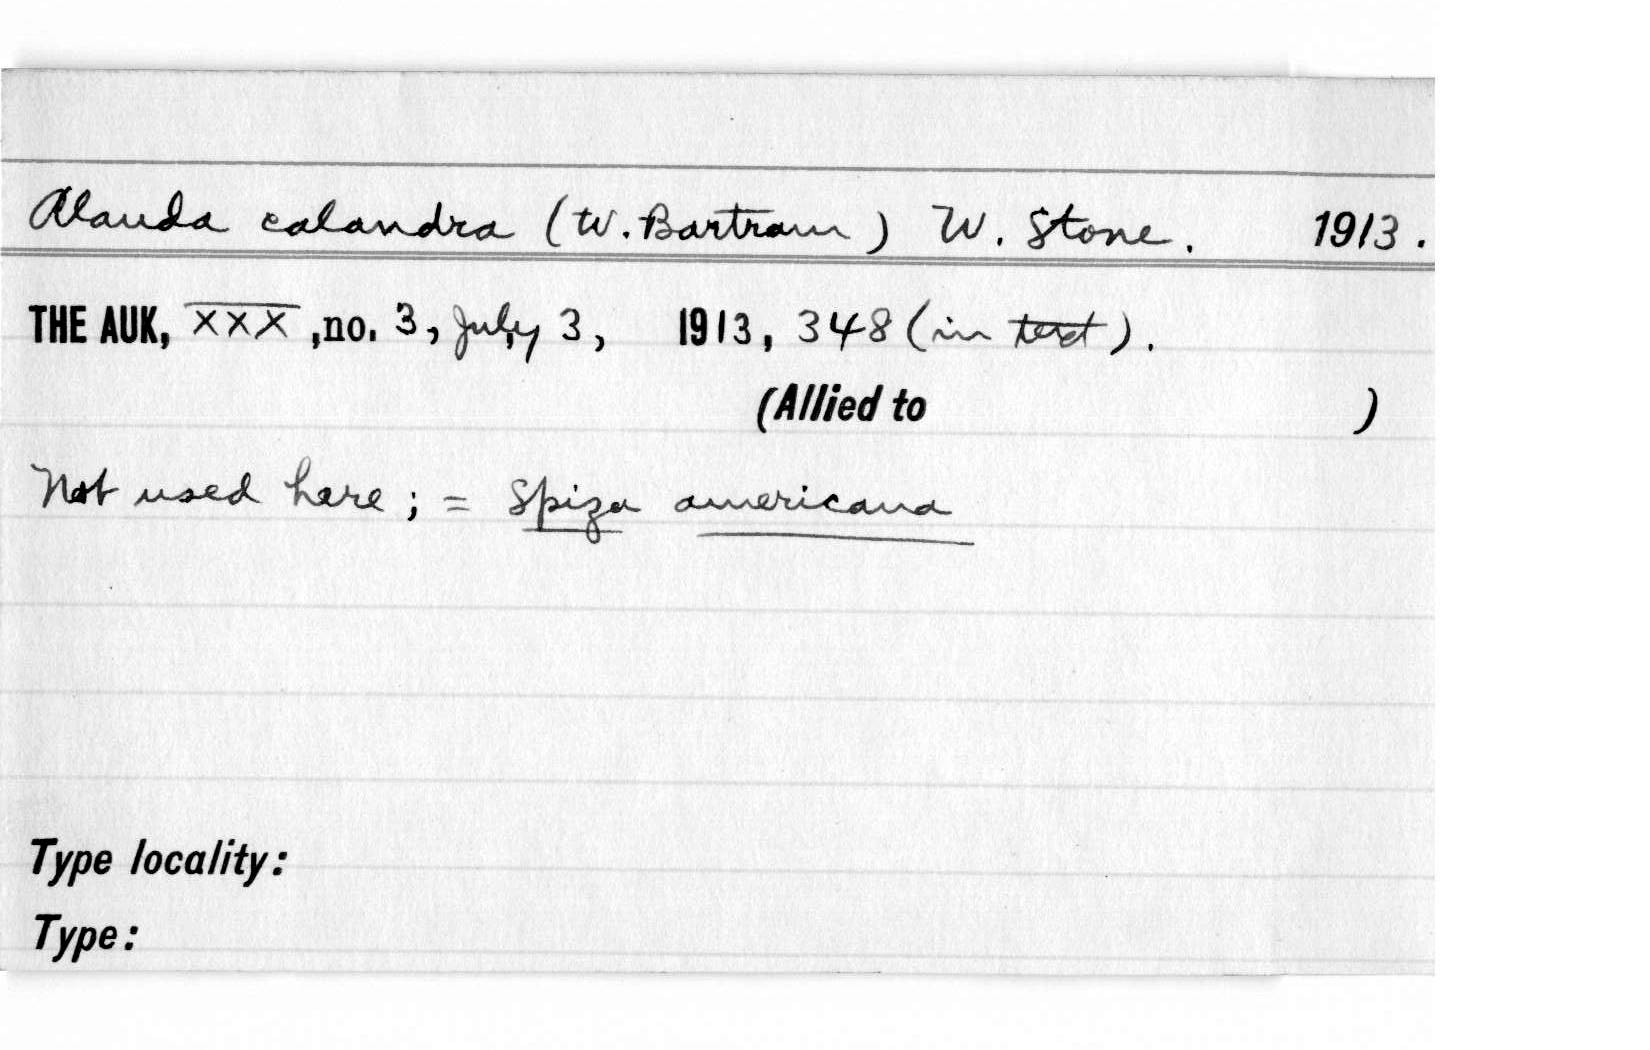 Alauda calandra (W. Bartram) W. Stone. 1913.
THE AUK, XXX, no. 3, July 3, 1913, 348 (in text).
(Allied to )
Not used here; = Spiza americana
Type locality:
Type: